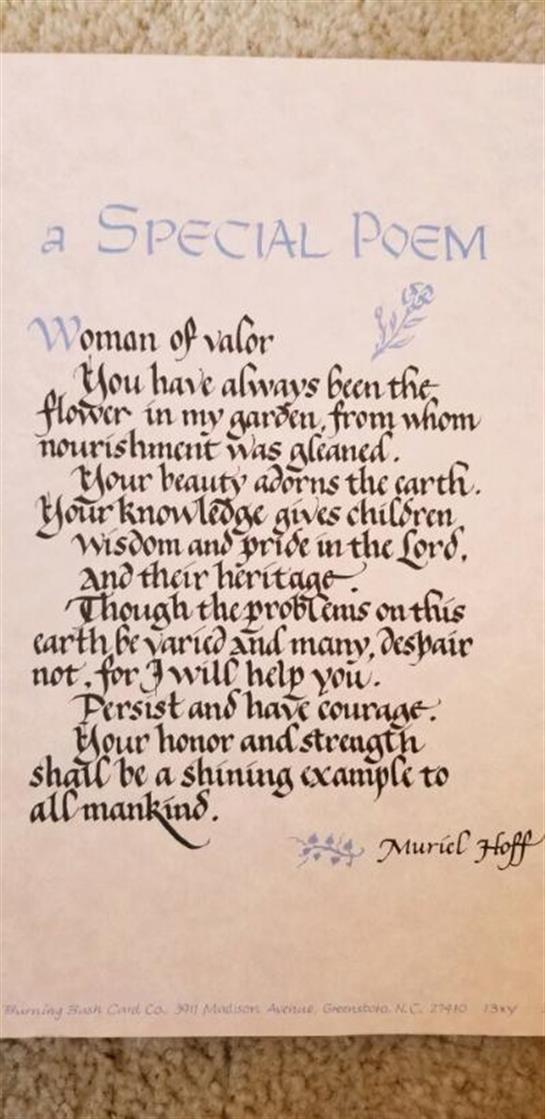 a SPECIAL POEM
Woman of valor
You have always been the
flower in my garden, from whom
nourishment was gleaned.
Your beauty adorns the earth.
Your knowledge gives children
wisdom and pride in the Lord,
And their heritage.
Though the problems on this
earth be varied and many, despair
not, for I will help you.
Persist and have courage.
Your honor and strength
shall be a shining example to
all mankind.
Muriel Hoff
Burning Bush Card Co. 3911 Madison Avenue, Greensboro, N.C. 27410 13xy